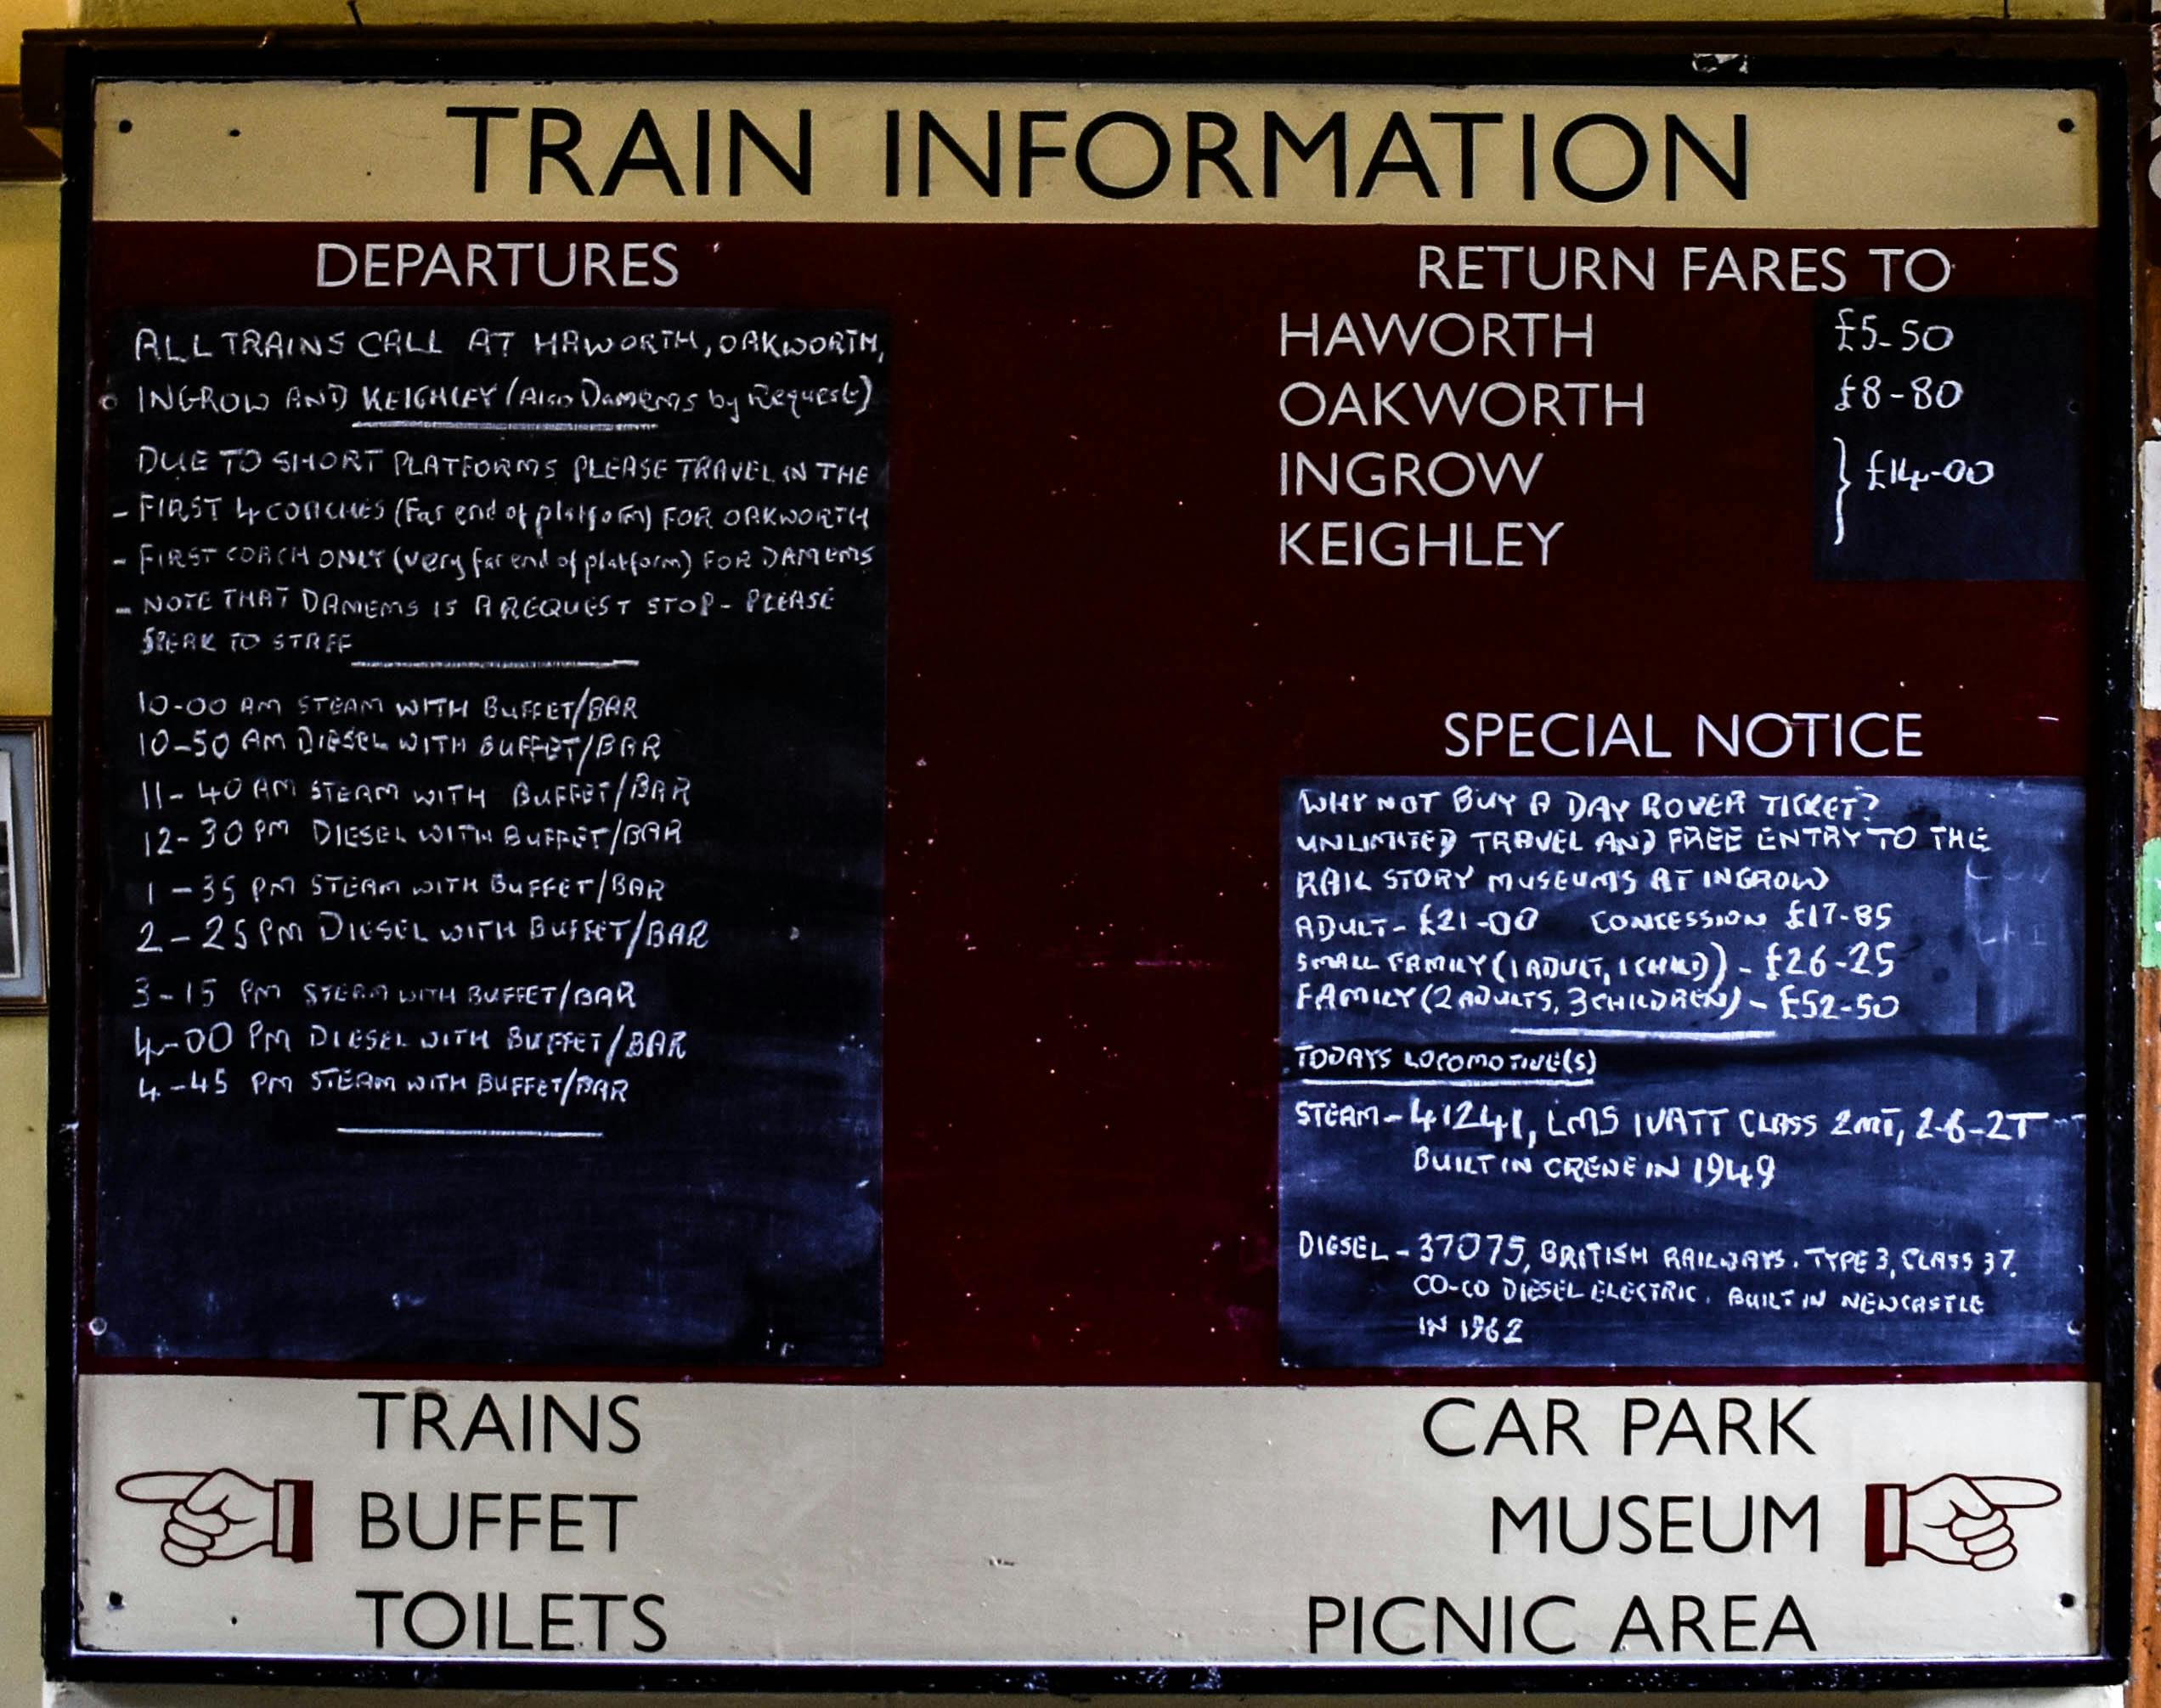 TRAIN INFORMATION
DEPARTURES
ALL TRAINS CALL AT HAWORTH, OAKWORTH,
INGROW AND KEIGHLEY (Also Damems by Request)
DUE TO SHORT PLATFORMS PLEASE TRAVEL IN THE
- FIRST 4 COACHES (Far end of platform) FOR OAKWORTH
- FIRST COACH ONLY (very far end of platform) FOR DAMEMS
- NOTE THAT DAMEMS IS A REQUEST STOP - PLEASE
SPEAK TO STAFF
10-00 AM STEAM WITH BUFFET/BAR
10-50 AM DIESEL WITH BUFFET/BAR
11-40 AM STEAM WITH BUFFET/BAR
12-30 PM DIESEL WITH BUFFET/BAR
1-35 PM STEAM WITH BUFFET/BAR
2-25 PM DIESEL WITH BUFFET/BAR
3-15 PM STEAM WITH BUFFET/BAR
4-00 PM DIESEL WITH BUFFET/BAR
4-45 PM STEAM WITH BUFFET/BAR
RETURN FARES TO
HAWORTH £5-50
OAKWORTH £8-80
INGROW } £14-00
KEIGHLEY
SPECIAL NOTICE
WHY NOT BUY A DAY ROVER TICKET?
UNLIMITED TRAVEL AND FREE ENTRY TO THE
RAIL STORY MUSEUMS AT INGROW
ADULT - £21-00 CONCESSION £17-85
SMALL FAMILY (1 ADULT, 1 CHILD) - £26-25
FAMILY (2 ADULTS, 3 CHILDREN) - £52-50
TODAYS LOCOMOTIVE(S)
STEAM - 41241, LMS IVATT CLASS 2MT, 2-6-2T
BUILT IN CREWE IN 1949
DIESEL - 37075, BRITISH RAILWAYS. TYPE 3, CLASS 37.
CO-CO DIESEL ELECTRIC. BUILT IN NEWCASTLE
IN 1962
TRAINS
BUFFET
TOILETS
CAR PARK
MUSEUM
PICNIC AREA